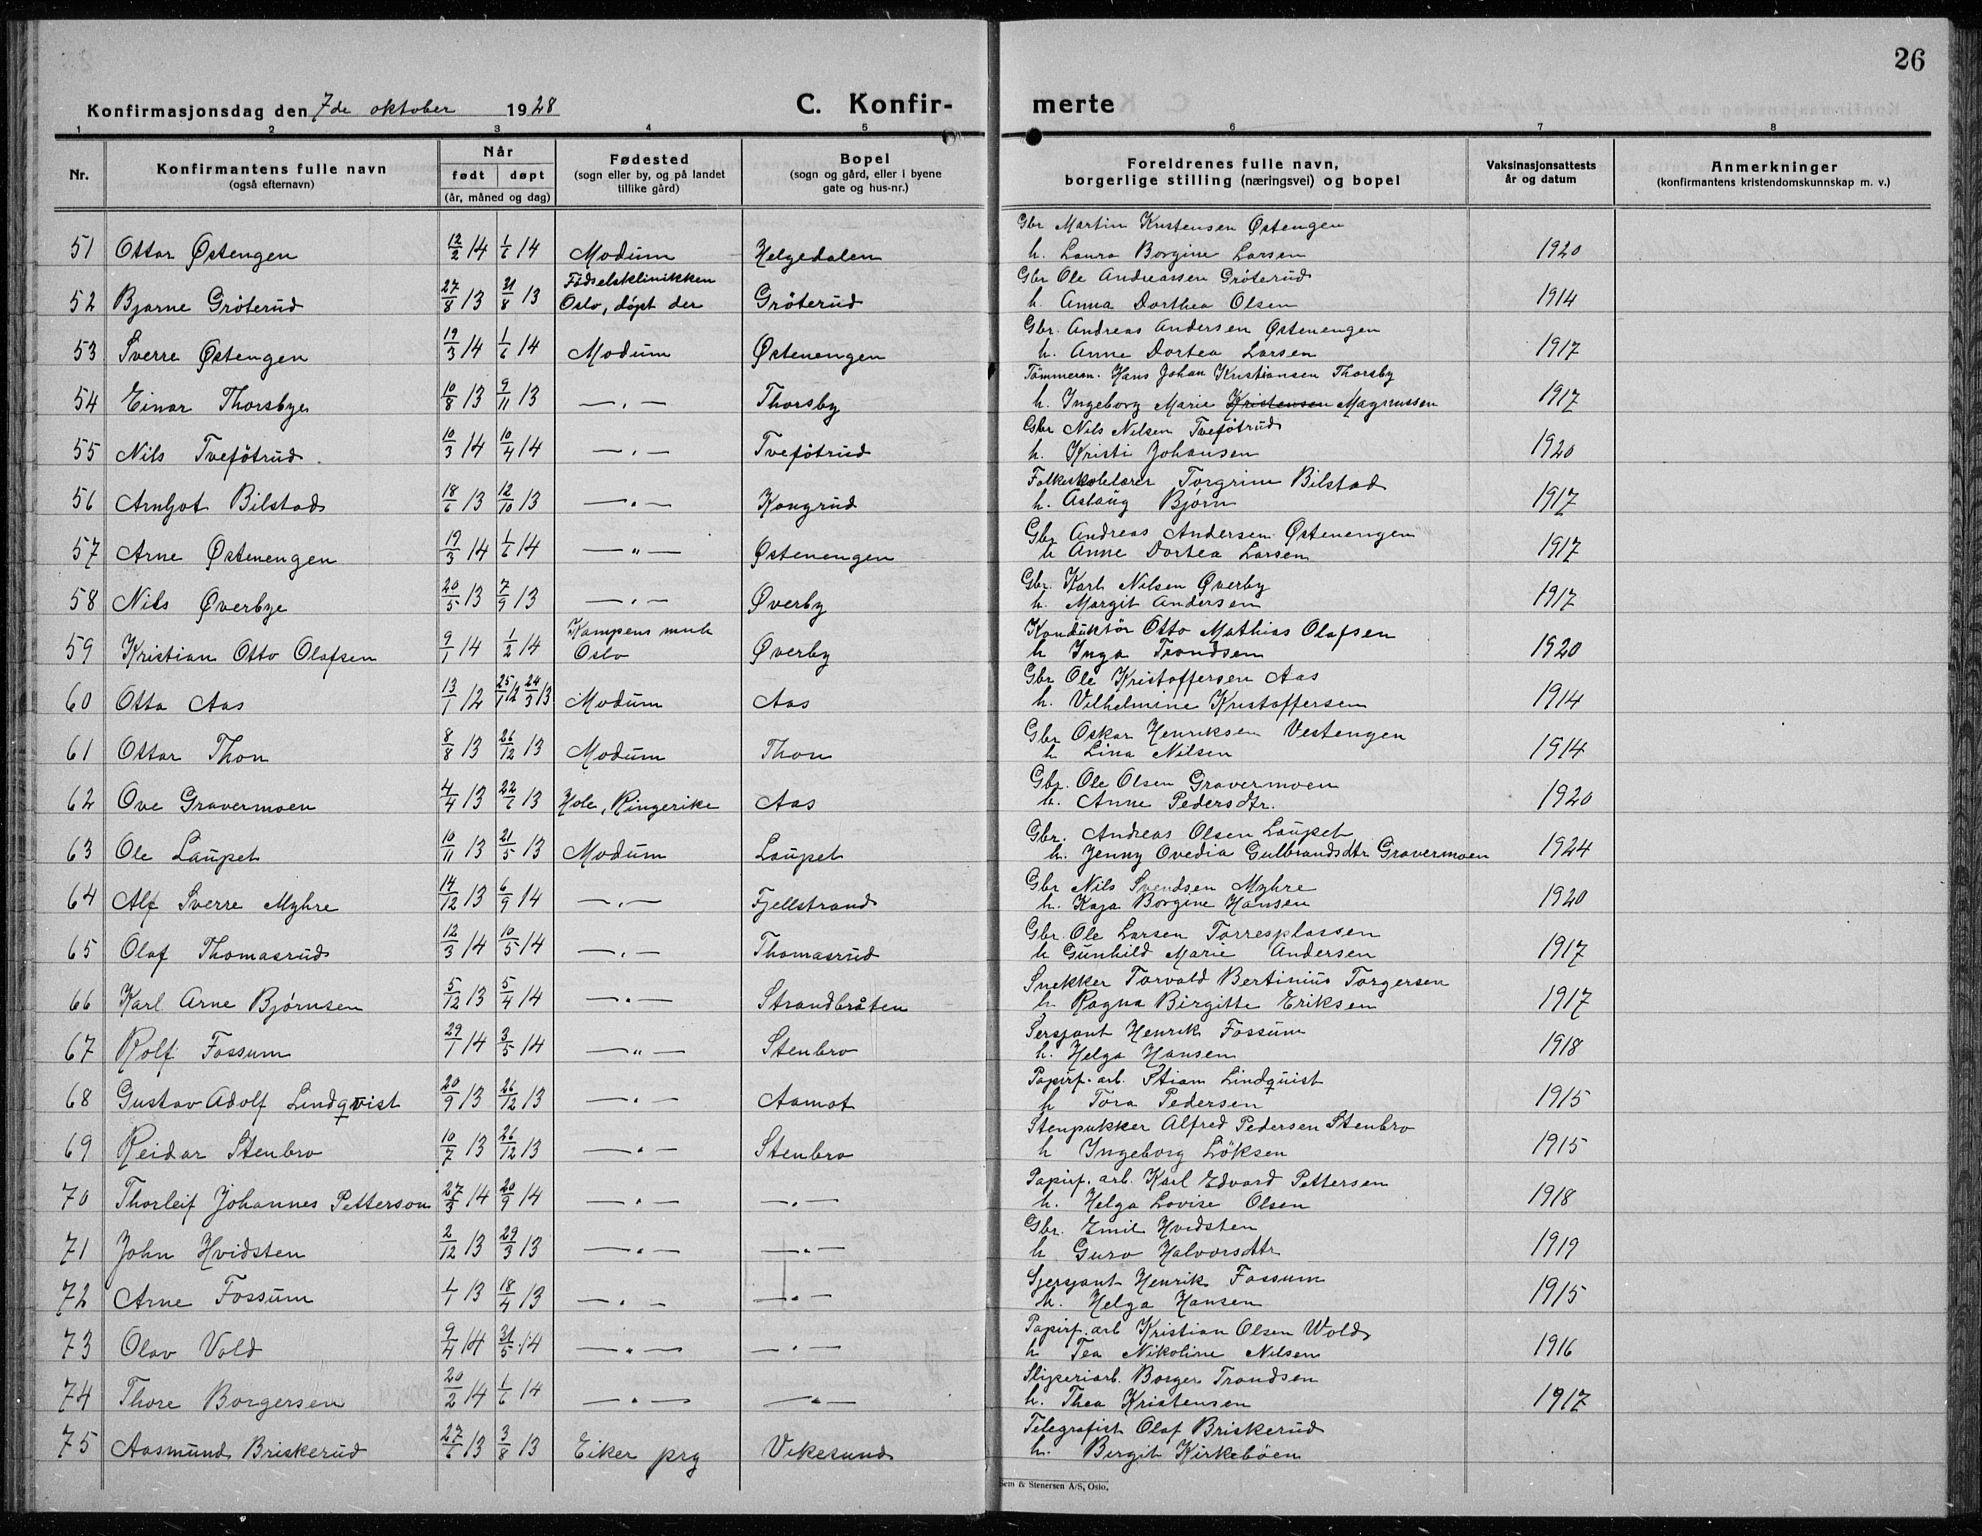 26
Konfirmasjonsdag den 7de oktober 1928
C. Konfir-
merte
1 2 3 4 5 6 7 8
Nr. Konfirmantens fulle navn (også efternavn) Når født døpt (år, måned og dag) Fødested (sogn eller by, og på landet tillike gård) Bopel (sogn og gård, eller i byene gate og hus-nr.) Foreldrenes fulle navn, borgerlige stilling (næringsvei) og bopel Vaksinasjonsattests år og datum Anmerkninger (konfirmantens kristendomskunnskap m. v.)
Gbr Martin Kristensen Østengen
51 Ottar Østengen 12/2 14 1/6 14 Modum Helgedalen h. Laura Borgine Larsen 1920
Fødselsklinikken Gbr Ole Andreassen Gröterud
52 Bjarne Gröterud 27/8 13 31/8 13 Oslo, döpt der Gröterud h. Anna Dorthea Olsen 1914
Gbr. Andreas Andersen Østenengen
53 Sverre Østengen 19/3 14 1/6 14 Modum Østenengen h. Anne Dortea Larsen 1917
Tömmerm. Hans Johan Kristiansen Thorsby
54 Einar Thorsbye 10/8 13 9/11 13 —„— Thorsby h. Ingeborg Marie Kristensen Magnussen 1917
Gbr Nils Nilsen Tvefötrud
55 Nils Tvefötrud. 10/3 14 10/4 14 —„— Tvefötrud h. Kristi Johansen 1920
Folkeskolelærer Torgrim Bilstad
56 Arnljot Bilstad 18/6 13 12/10 13 —„— Kongrud h. Aslaug Bjørn 1917
Gbr Andreas Andersen Østenengen
57 Arne Østenengen 19/3 14 1/6 14 —„— Østenengen h Anne Dortea Larsen 1917
Gbr. Karl Nilsen Øverby
58 Nils Øverbye 20/5 13 7/9 13 —„— Øverby h. Margit Andersen 1917
Kampens mnh Konduktör Otto Mathias Olafsen
59 Kristian Otto Olafsen 9/1 14 1/2 14 Oslo Øverby h Inga Trondsen 1920
Gbr Ole Kristoffersen Aas
60 Otto Aas 13/1 12 25/1 12 24/3 13 Modum Aas h. Vilhelmine Kristoffersen 1914
Gbr Oskar Henriksen Vestengen
61 Ottar Thon 8/8 13 26/12 13 Modum Thon h Lina Nilsen 1914
Gbr. Ole Olsen Gravermoen
62 Ove Gravermoen 4/4 13 22/6 13 Hole, Ringerike Aas h. Anne Pedersdtr. 1920
Gbr. Andreas Olsen Laupet
63 Ole Laupet 10/11 13 21/5 13 Modum Laupet h. Jenny Ovedia Gulbrandsdtr Gravermoen 1924
Gbr Nils Svendsen Myhre
64 Alf Sverre Myhre 14/12 13 6/9 14 —„— Fjellstrand h. Kaja Borgine Hansen 1920
Gbr. Ole Larsen Torresplassen
65 Olaf Thomasrud 12/3 14 10/5 14 —„— Thomasrud h Gunhild Marie Andersen 1917
Snekker Torvald Bertinius Torgersen
66 Karl Arne Bjørnsen 5/12 13 5/4 14 —„— Strandbråten h. Ragna Birgitte Eriksen 1917
Sersjant Henrik Fossum
67 Rolf Fossum 29/1 14 3/5 14 —„— Stenbro h. Helga Hansen 1918
Papirf. arb. Lindquist
68 Gustav Adolf Lindqvist 20/9 13 26/12 13 —„— Aamot h Tora Pedersen 1915
Stenpukker Alfred Pedersen Stenbro
69 Reidar Stenbro 10/7 13 26/12 13 —„— Stenbro h Ingeborg Löksen 1915
Papirf. arb. Karl Edvard Pettersen
70 Thorleif Johannes Petterson 27/3 14 20/9 14 —„— —„— h. Helga Lovise Olsen 1918
Gbr. Emil Hvidsten
71 John Hvidsten 2/12 13 29/3 13 —„— —„— h Guro Halvorsdtr 1919
Sjersjant Henrik Fossum
72 Arne Fossum 1/1 13 18/4 13 —„— —„— h. Helga Hansen 1915
Papirf. arb Kristian Olsen Wold
73 Olav Vold 9/4 14 31/5 14 —„— —„— h Tea Nikoline Nilsen 1916
Sliperiarb. Borger Trondsen
74 Thore Borgersen 20/2 14 1/6 14 —„— —„— h. Thea Kristensen 1917
Telegrafist Olaf Briskerud
75 Aasmund Briskerud 27/6 13 3/8 13 Eiker prg Vikesund h. Birgit Kirkebøen
Sem & Stenersen A/S, Oslo.